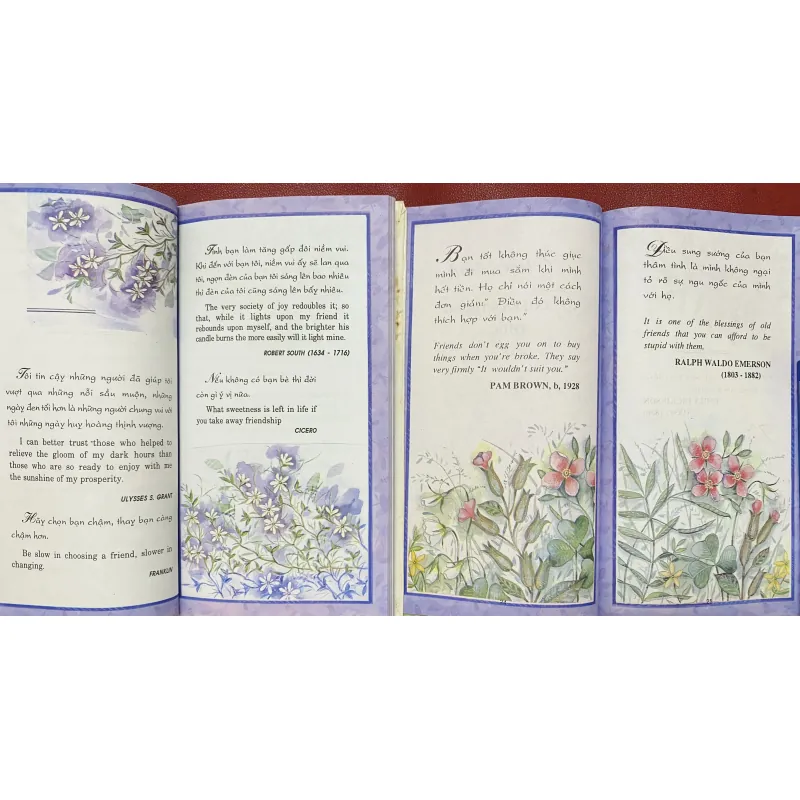 Tôi tin cậy những người đã giúp tôi
vượt qua những nỗi sầu muộn, những
ngày đen tối hơn là những người chung vui với
tôi những ngày huy hoàng thịnh vượng.
I can better trust those who helped to
relieve the gloom of my dark hours than
those who are so ready to enjoy with me
the sunshine of my prosperity.
ULYSSES S. GRANT
Hãy chọn bạn chậm, thay bạn càng
chậm hơn.
Be slow in choosing a friend, slower in
changing.
FRANKLIN
Tình bạn làm tăng gấp đôi niềm vui.
Khi đến với bạn tôi, niềm vui ấy sẽ lan qua
tôi, ngọn đèn của bạn tôi sáng lên bao nhiêu
thì đèn của tôi cũng sáng lên bấy nhiêu.
The very society of joy redoubles it; so
that, while it lights upon my friend it
rebounds upon myself, and the brighter his
candle burns the more easily will it light mine.
ROBERT SOUTH (1634 - 1716)
Nếu không có bạn bè thì đời
còn gì ý vị nữa.
What sweetness is left in life if
you take away friendship
CICERO
Bạn tốt không thúc giục
mình đi mua sắm khi mình
hết tiền. Họ chỉ nói một cách
đơn giản:" Điều đó không
thích hợp với bạn."
Friends don't egg you on to buy
things when you're broke. They say
very firmly "It wouldn't suit you."
PAM BROWN, b, 1928
Điều sung sướng của bạn
thâm tình là mình không ngại
tỏ rõ sự ngu ngốc của mình
với họ.
It is one of the blessings of old
friends that you can afford to be
stupid with them.
RALPH WALDO EMERSON
(1803 - 1882)